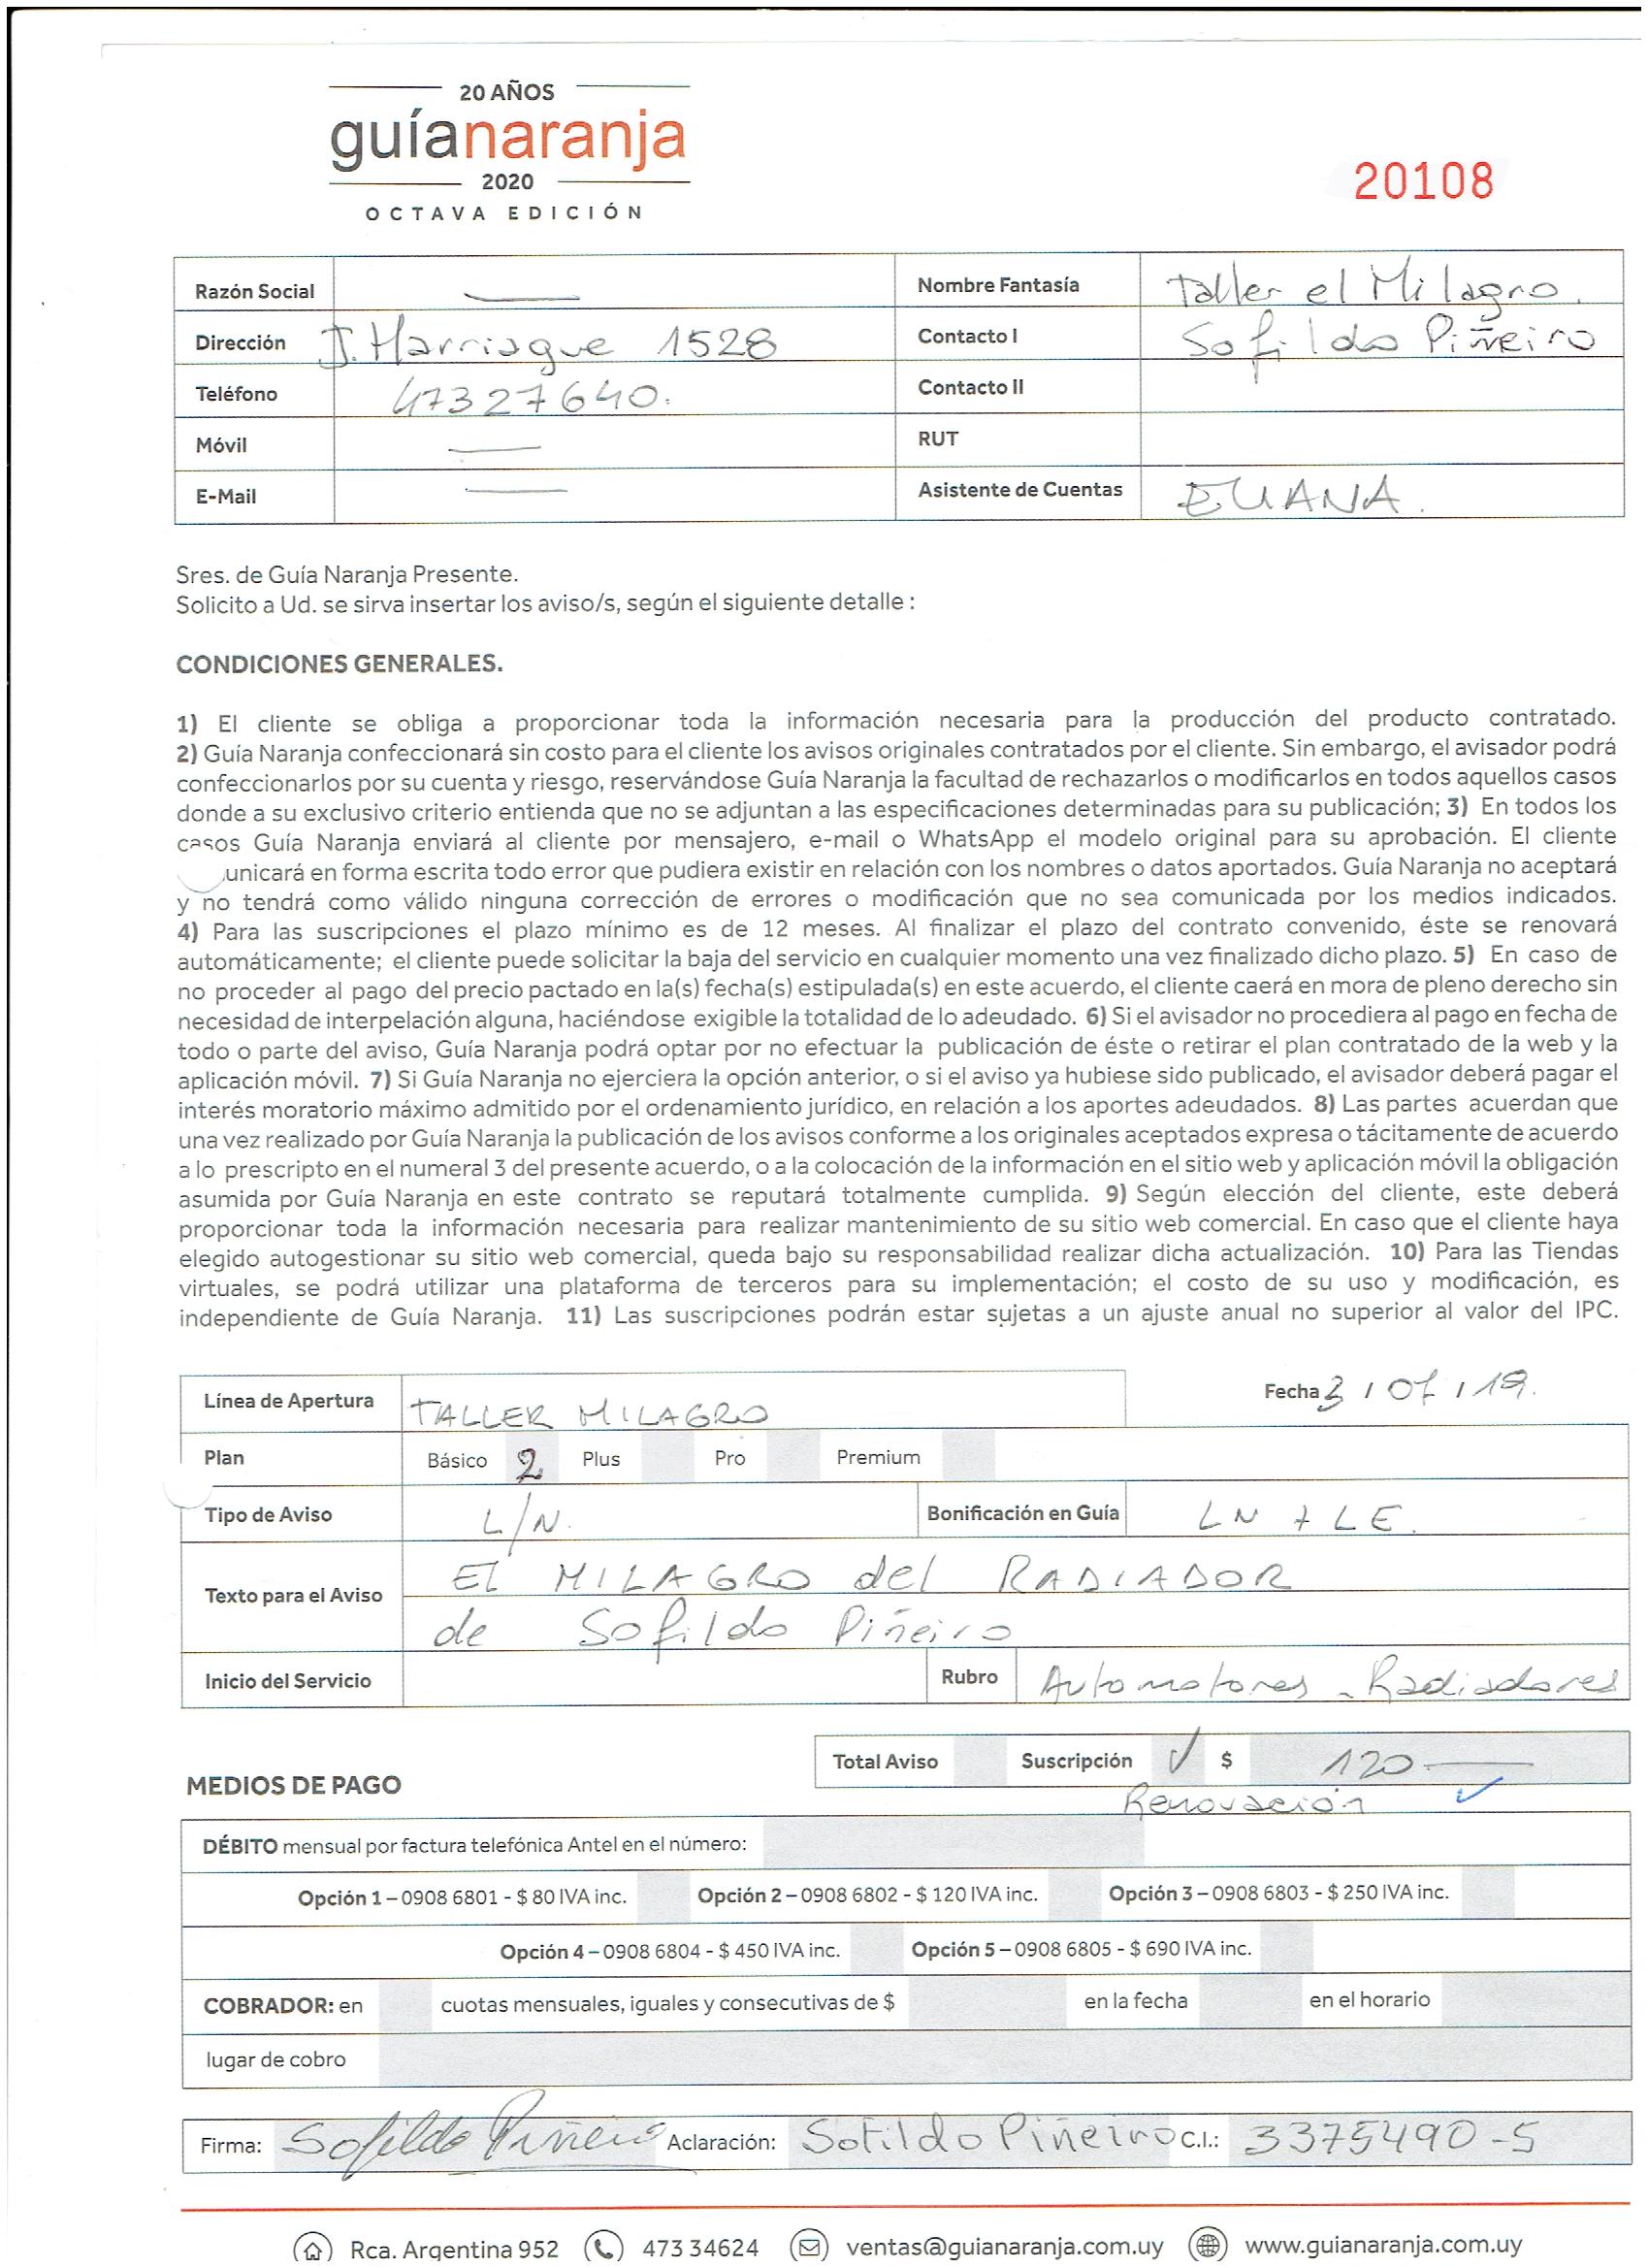 20 AÑOS
guíanaranja
2020
OCTAVA EDICIÓN
20108
Razón Social
Nombre Fantasía Taller el Milagro.
Dirección J. Harriague 1528
Contacto I Sofildo Piñeiro
Teléfono 47327640.
Contacto II
Móvil
RUT
E-Mail
Asistente de Cuentas ELIANA.
Sres. de Guía Naranja Presente.
Solicito a Ud. se sirva insertar los aviso/s, según el siguiente detalle :
CONDICIONES GENERALES.
1) El cliente se obliga a proporcionar toda la información necesaria para la producción del producto contratado.
2) Guía Naranja confeccionará sin costo para el cliente los avisos originales contratados por el cliente. Sin embargo, el avisador podrá
confeccionarlos por su cuenta y riesgo, reservándose Guía Naranja la facultad de rechazarlos o modificarlos en todos aquellos casos
donde a su exclusivo criterio entienda que no se adjuntan a las especificaciones determinadas para su publicación; 3) En todos los
casos Guía Naranja enviará al cliente por mensajero, e-mail o WhatsApp el modelo original para su aprobación. El cliente
unicará en forma escrita todo error que pudiera existir en relación con los nombres o datos aportados. Guía Naranja no aceptará
y no tendrá como válido ninguna corrección de errores o modificación que no sea comunicada por los medios indicados.
4) Para las suscripciones el plazo mínimo es de 12 meses. Al finalizar el plazo del contrato convenido, éste se renovará
automáticamente; el cliente puede solicitar la baja del servicio en cualquier momento una vez finalizado dicho plazo. 5) En caso de
no proceder al pago del precio pactado en la(s) fecha(s) estipulada(s) en este acuerdo, el cliente caerá en mora de pleno derecho sin
necesidad de interpelación alguna, haciéndose exigible la totalidad de lo adeudado. 6) Si el avisador no procediera al pago en fecha de
todo o parte del aviso, Guía Naranja podrá optar por no efectuar la publicación de éste o retirar el plan contratado de la web y la
aplicación móvil. 7) Si Guía Naranja no ejerciera la opción anterior, o si el aviso ya hubiese sido publicado, el avisador deberá pagar el
interés moratorio máximo admitido por el ordenamiento jurídico, en relación a los aportes adeudados. 8) Las partes acuerdan que
una vez realizado por Guía Naranja la publicación de los avisos conforme a los originales aceptados expresa o tácitamente de acuerdo
a lo prescripto en el numeral 3 del presente acuerdo, o a la colocación de la información en el sitio web y aplicación móvil la obligación
asumida por Guía Naranja en este contrato se reputará totalmente cumplida. 9) Según elección del cliente, este deberá
proporcionar toda la información necesaria para realizar mantenimiento de su sitio web comercial. En caso que el cliente haya
elegido autogestionar su sitio web comercial, queda bajo su responsabilidad realizar dicha actualización. 10) Para las Tiendas
virtuales, se podrá utilizar una plataforma de terceros para su implementación; el costo de su uso y modificación, es
independiente de Guía Naranja. 11) Las suscripciones podrán estar sujetas a un ajuste anual no superior al valor del IPC.
Línea de Apertura TALLER MILAGRO
Fecha 3 / 07 / 19.
Plan Básico 2 Plus Pro Premium
Tipo de Aviso L/N. Bonificación en Guía LN + LE.
Texto para el Aviso EL MILAGRO del RADIADOR
de Sofildo Piñeiro
Inicio del Servicio Rubro Automotores - Radiadores
Total Aviso Suscripción ✓ $ 120
MEDIOS DE PAGO
Renovación ✓
DÉBITO mensual por factura telefónica Antel en el número:
Opción 1 – 0908 6801 - $ 80 IVA inc. Opción 2 – 0908 6802 - $ 120 IVA inc. Opción 3 – 0908 6803 - $ 250 IVA inc.
Opción 4 – 0908 6804 - $ 450 IVA inc. Opción 5 – 0908 6805 - $ 690 IVA inc.
COBRADOR: en cuotas mensuales, iguales y consecutivas de $ en la fecha en el horario
lugar de cobro
Firma: Sofildo Piñeiro Aclaración: Sofildo Piñeiro C.I.: 3375490-5
Rca. Argentina 952 473 34624 ventas@guianaranja.com.uy www.guianaranja.com.uy